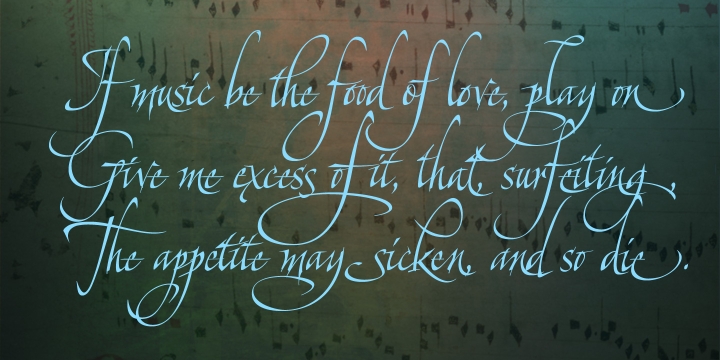 If music be the food of love, play on,
Give me excess of it, that, surfeiting,
The appetite may sicken, and so die.